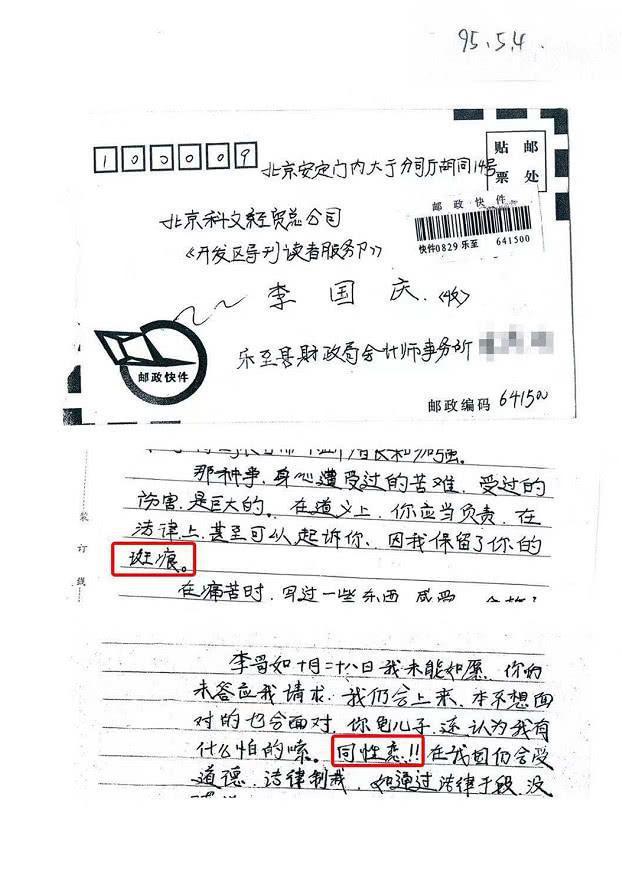 95.5.4.
100009
贴 邮
票 处
北京安定门内大于分司厅胡同14号
邮 政 快 件
北京科文经贸总公司
快件0829 乐至 641500
《开发区导刊读者服务卩》
李 国 庆.<收>
邮政快件
乐至县财政局会计师事务所
邮政编码 641500
那种事,身心遭受过的苦难,受过的
伤害,是巨大的。在道义上,你应当负责,在
装
法律上,甚至可以起诉你、因我保留了你的
订
斑痕。
线
在痛苦时,写过一些东西,感受、
李哥如十月二十八日我未能如愿.你的
未答应我请求.我们会上来、本不想面
对的也会面对,你龟儿子,还认为我有
什么怕的嗦。同性恋!!在我国仍会受
道德、法律制裁,如通过法律手段,没